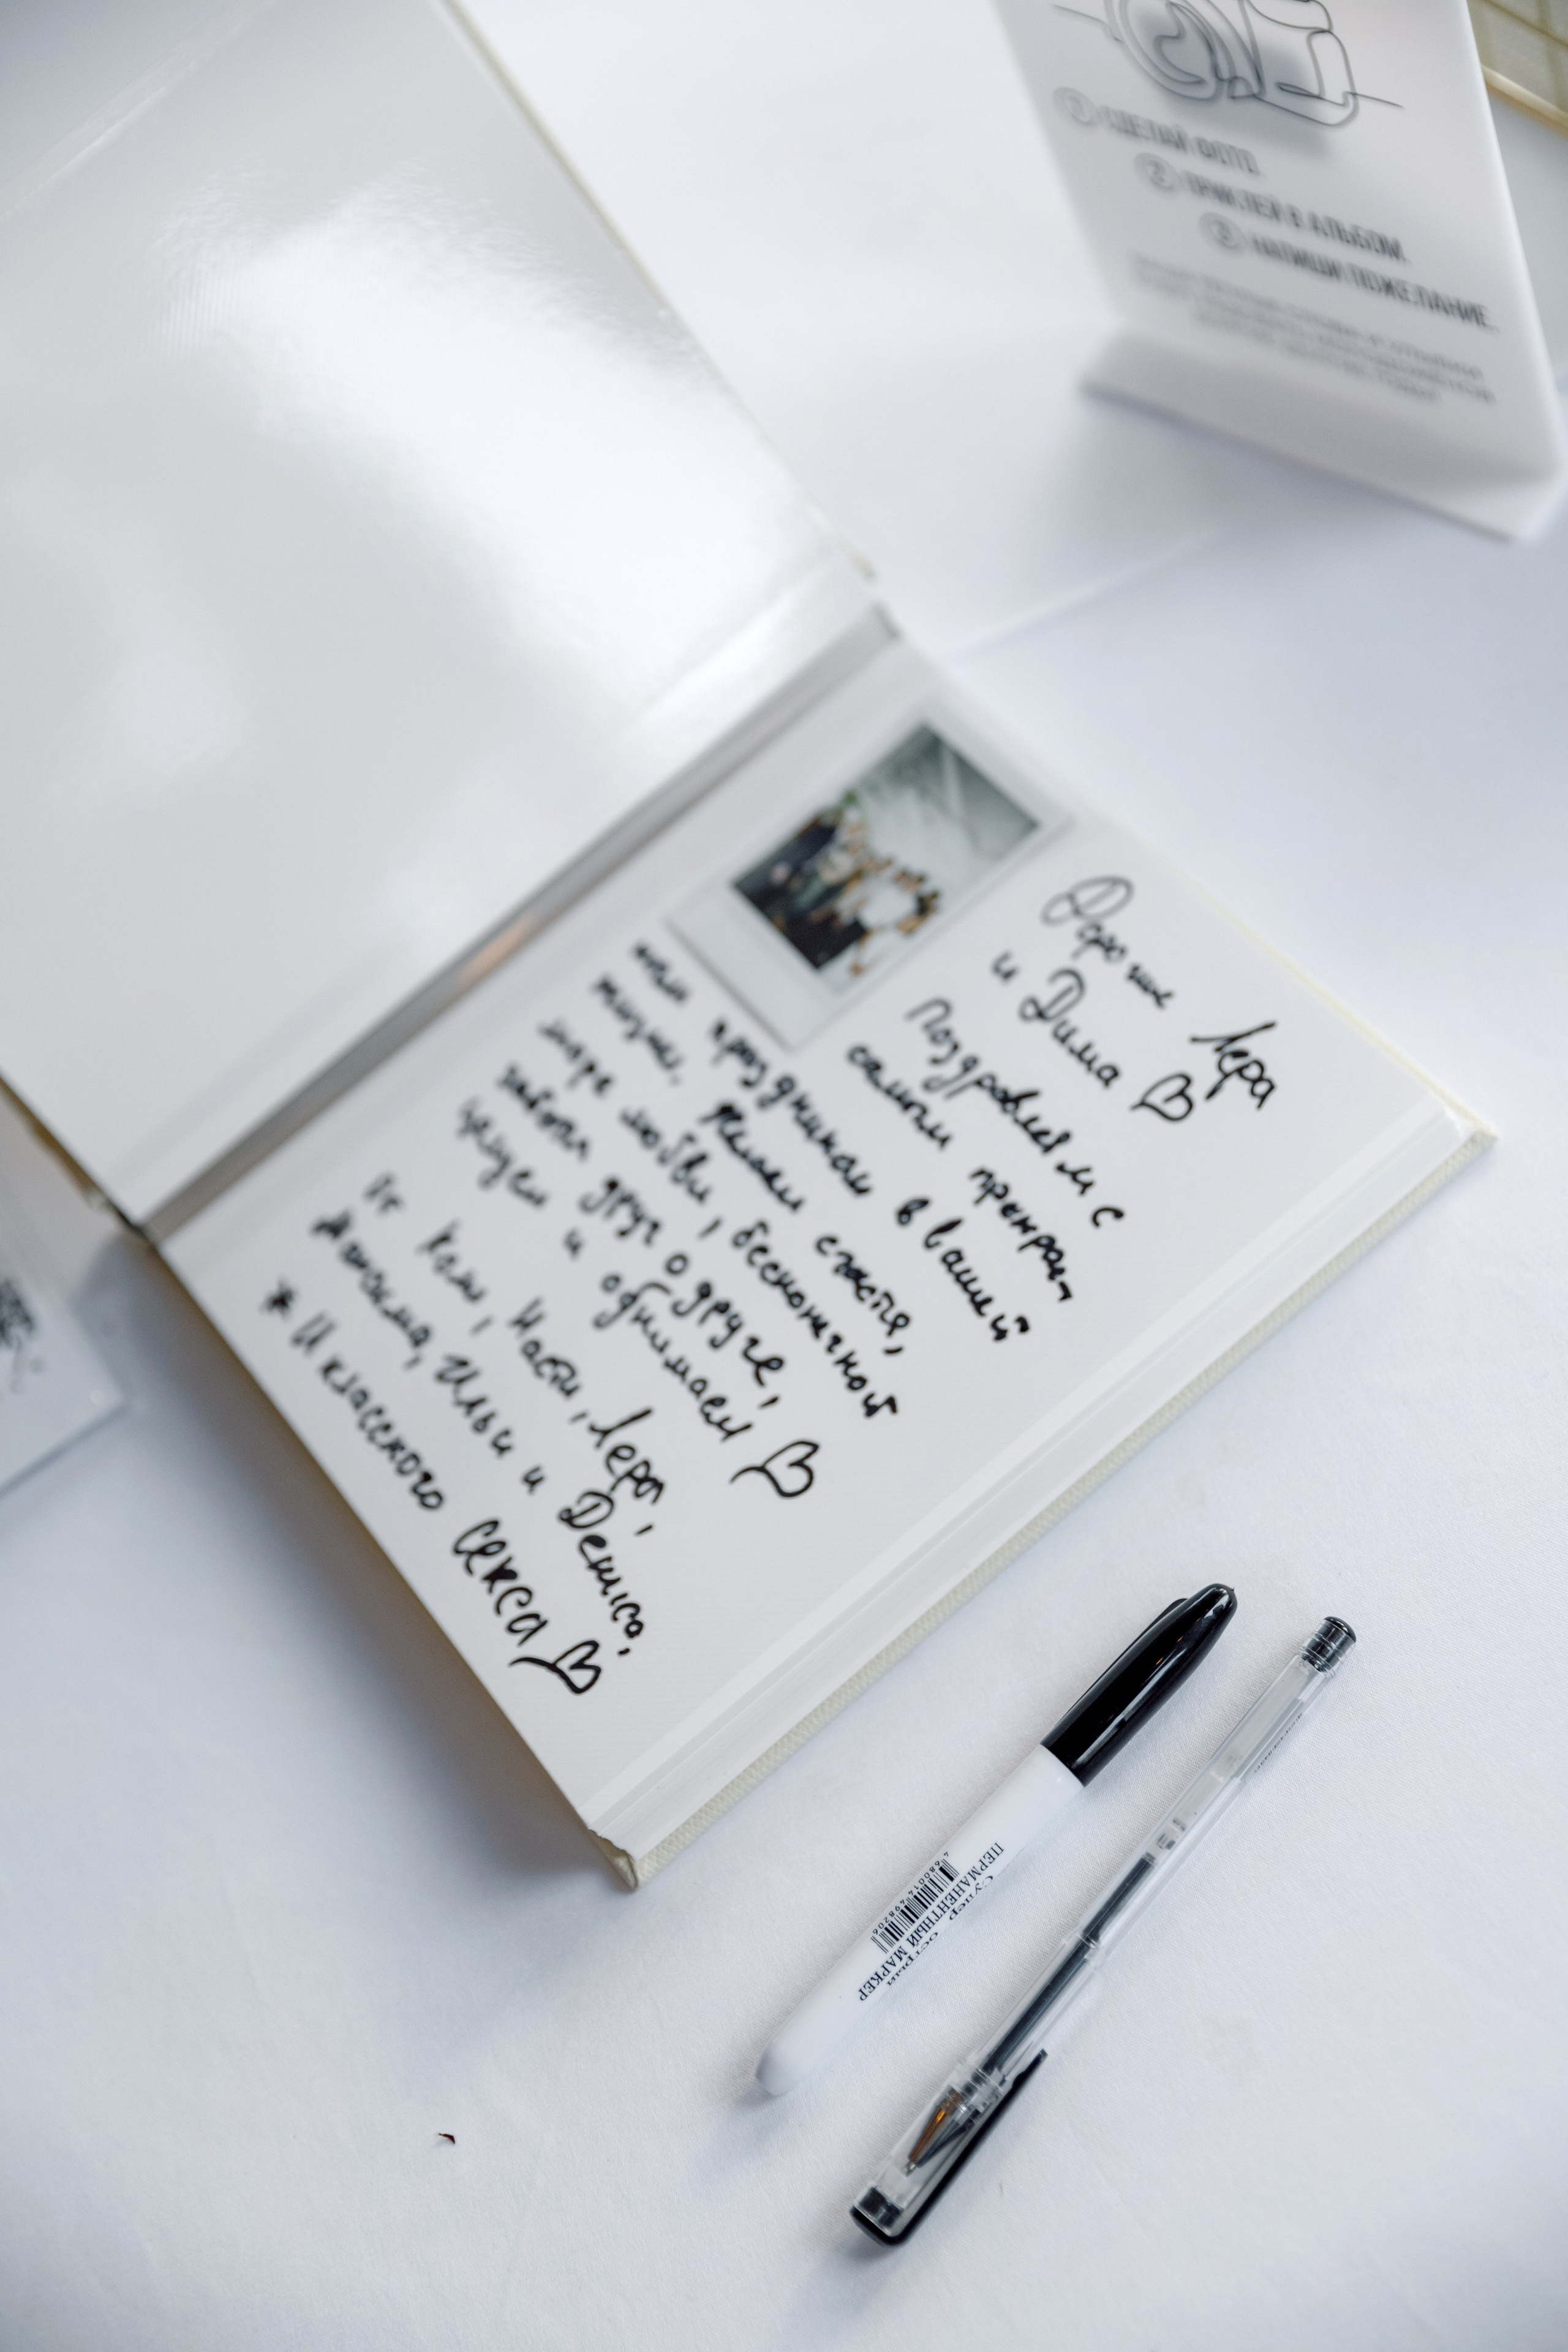 1 СДЕЛАЙ ФОТО.
2 ПРИКЛЕЙ В АЛЬБОМ.
3 НАПИШИ ПОЖЕЛАНИЕ.
Дорогие Лера
и Дима ♡
Поздравляем с
самым прекрас-
ным праздником в вашей
жизни. Желаем счастья,
моря любви, бесконечной
заботы друг о друге,
целуем и обнимаем ♡
От Насти, Леры,
Максима, Ильи и Дениса.
* И классного секса ♡
Супер острый
ПЕРМАНЕНТНЫЙ МАРКЕР
4 680014 498206